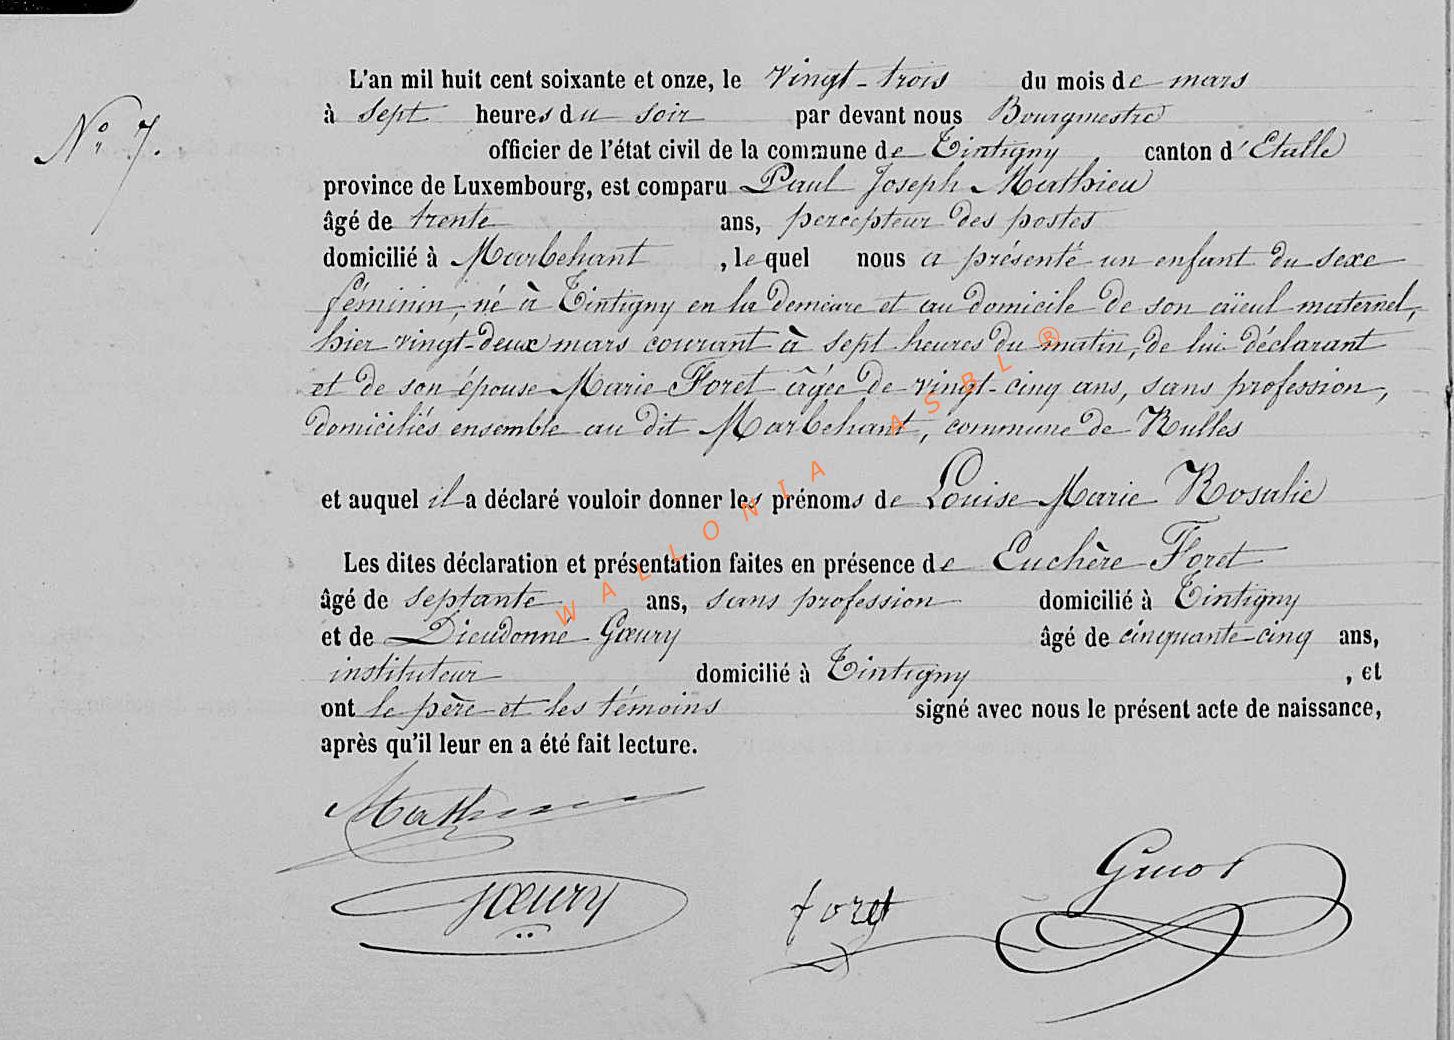 L'an mil huit cent soixante et onze, le vingt-trois du mois de mars
à sept heures du soir par devant nous Bourgmestre
N° 7.
officier de l'état civil de la commune de Tintigny canton d'Etalle
province de Luxembourg, est comparu Paul Joseph Mathieu
âgé de trente ans, percepteur des postes
domicilié à Marbehant, le quel nous a présenté un enfant du sexe
féminin, né à Tintigny en la demeure et au domicile de son aïeul maternel,
hier vingt-deux mars courant à sept heures du matin, de lui déclarant
et de son épouse Marie Foret âgée de vingt-cinq ans, sans profession,
domiciliés ensemble au dit Marbehant, commune de Rulles
et auquel il a déclaré vouloir donner les prénoms de Louise Marie Rosalie
Les dites déclaration et présentation faites en présence de Euchère Foret
âgé de septante ans, sans profession domicilié à Tintigny
et de Dieudonné Gœury âgé de cinquante-cinq ans,
instituteur domicilié à Tintigny, et
ont le père et les témoins signé avec nous le présent acte de naissance,
après qu'il leur en a été fait lecture.
WALLONIA ASBL ®
Mathieu
Gœury
foret